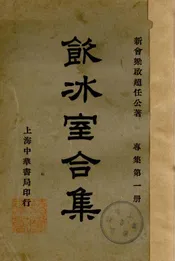 新會梁啟超任公著
專集第一册
飲冰室合集
上海中華書局印行